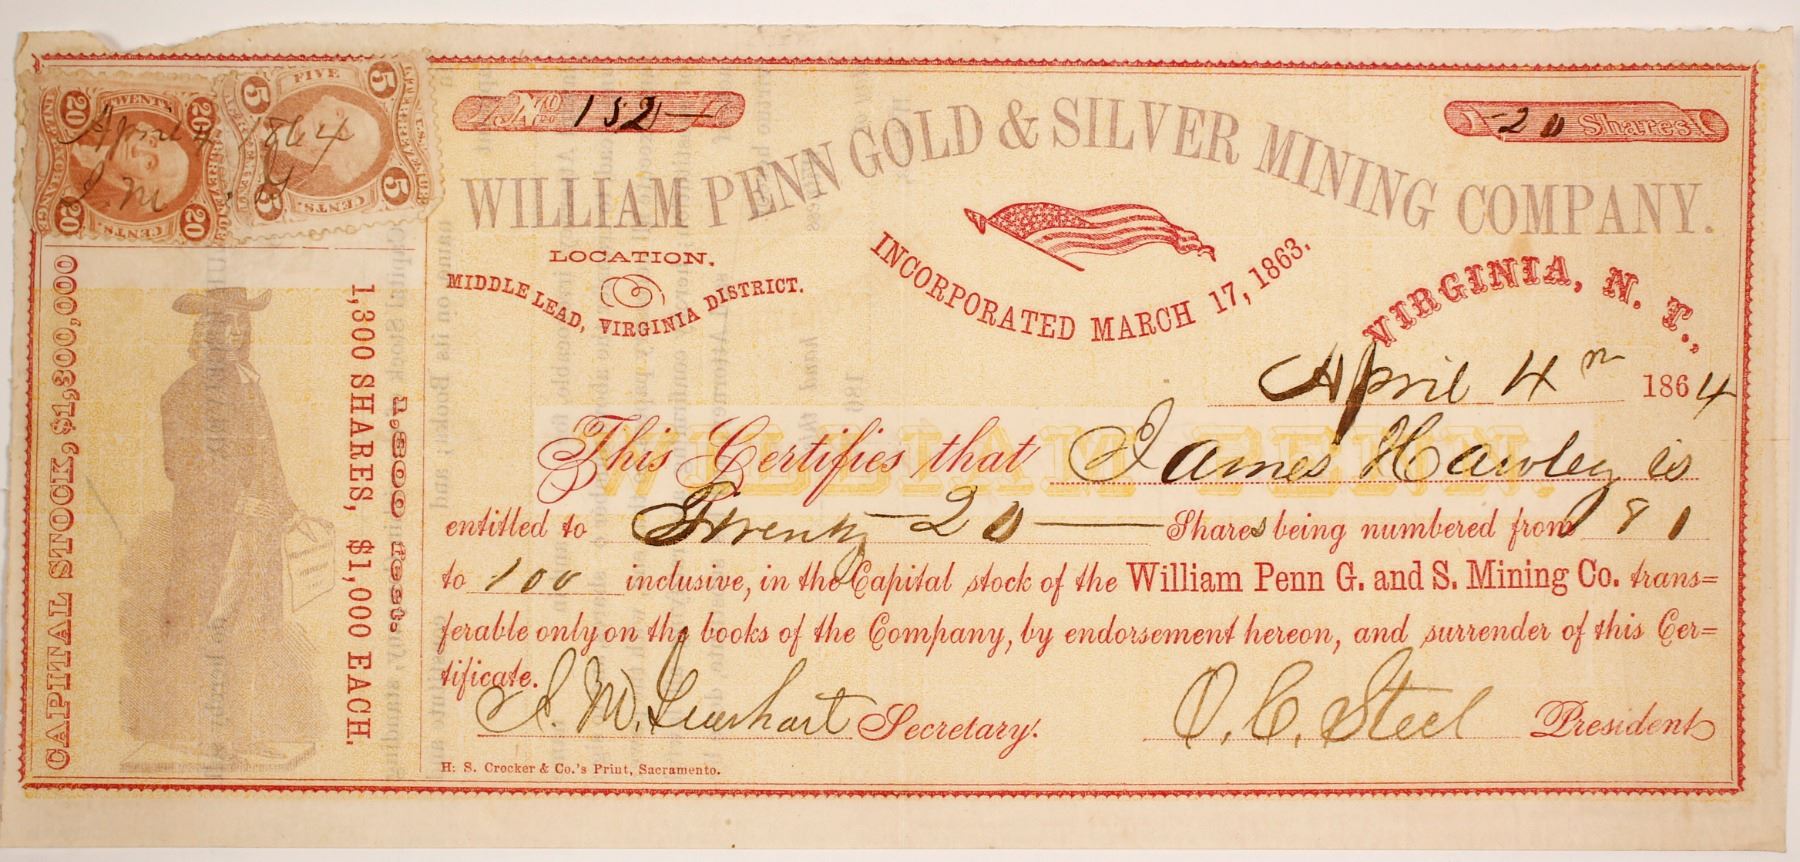 No 152
20 Shares.
WILLIAM PENN GOLD & SILVER MINING COMPANY.
LOCATION.
MIDDLE LEAD, VIRGINIA DISTRICT.
INCORPORATED MARCH 17, 1863.
VIRGINIA, N. T.,
April 4th 1864
This Certifies that James Hawley is
entitled to Twenty 20 Shares being numbered from 81
to 100 inclusive, in the Capital stock of the William Penn G. and S. Mining Co. trans=
ferable only on the books of the Company, by endorsement hereon, and surrender of this Cer=
tificate.
S. M. Secretary.
O. C. Steel President
H. S. Crocker & Co.'s Print, Sacramento.
CAPITAL STOCK, $1,300,000
1,300 SHARES, $1,000 EACH.
1,300 feet.
TWENTY
20 20
20 20
CENTS.
FIVE
5 5
5 5
CENTS.
U.S. INTER. REVENUE
April 4 1864
S. M.